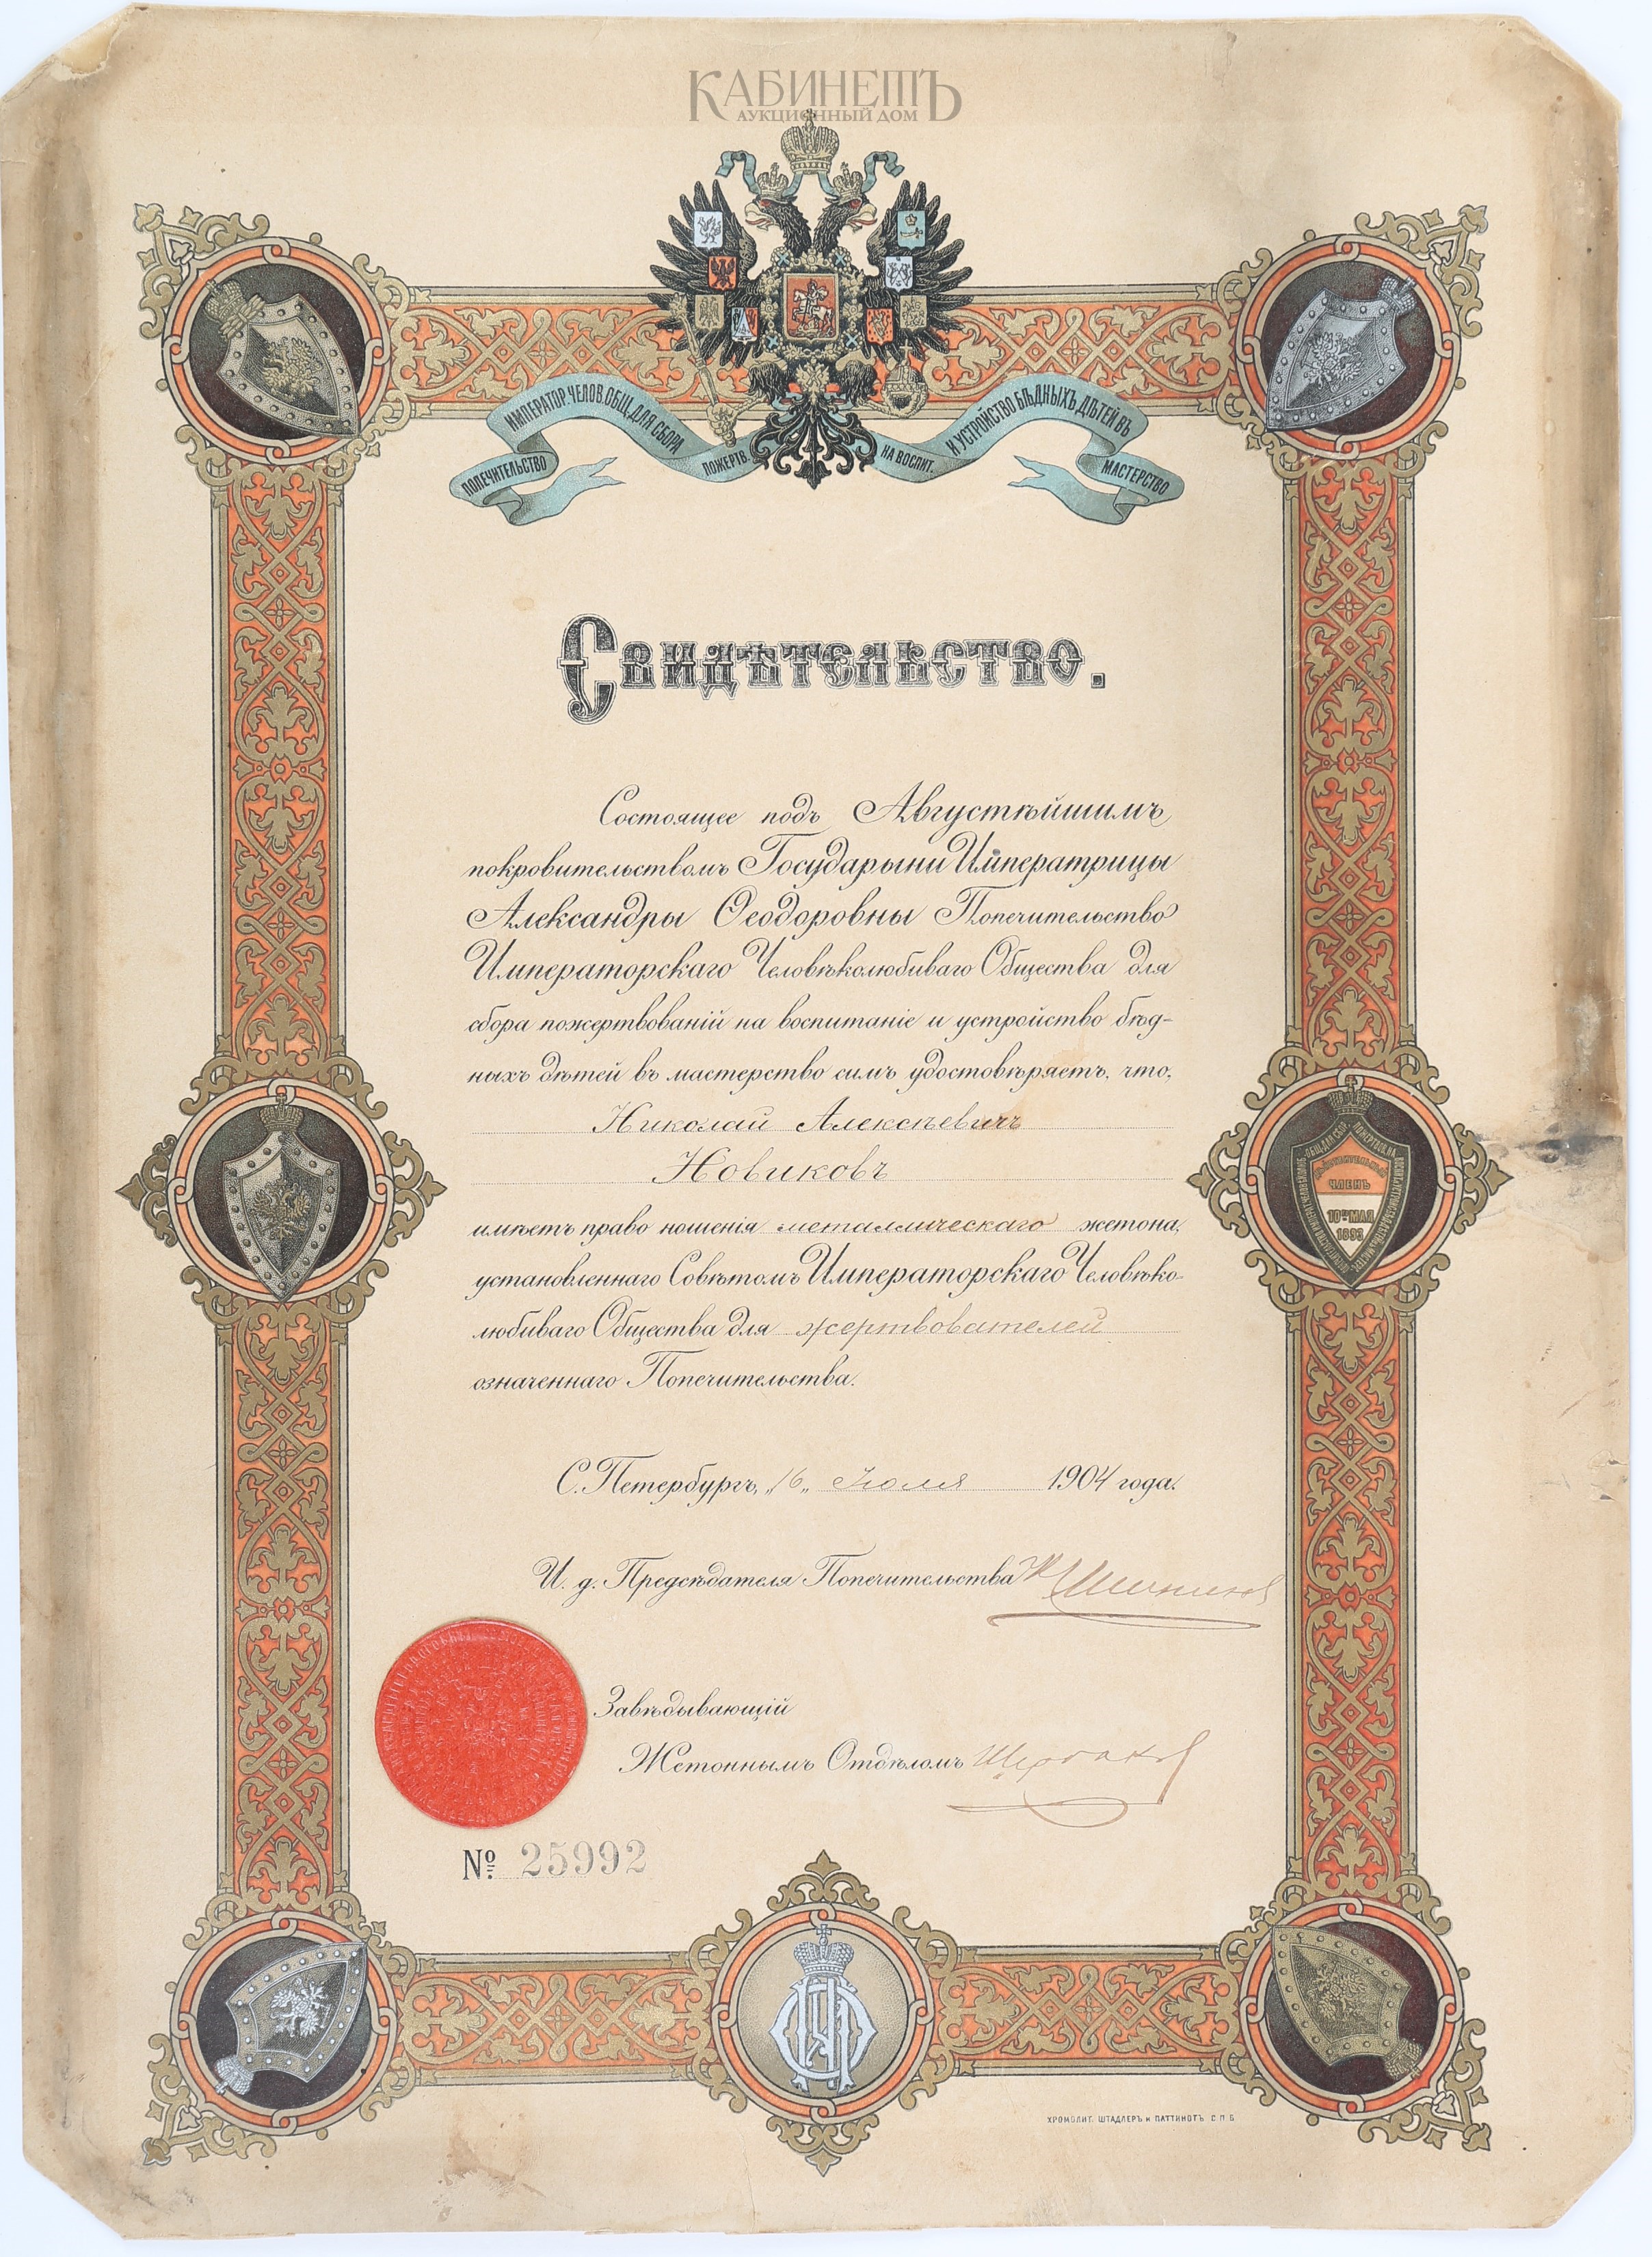 КАБИНЕТЪ
АУКЦИОННЫЙ ДОМ
ПОПЕЧИТЕЛЬСТВО ИМПЕРАТОР. ЧЕЛОВ. ОБЩ. ДЛЯ СБОРА ПОЖЕРТВ. НА ВОСПИТ. И УСТРОЙСТВО БѢДНЫХЪ ДѢТЕЙ ВЪ МАСТЕРСТВО
Свидѣтельство.
Состоящее подъ Августѣйшимъ
покровительствомъ Государыни Императрицы
Александры Ѳеодоровны Попечительство
Императорскаго Человѣколюбиваго Общества для
сбора пожертвованій на воспитаніе и устройство бѣд-
ныхъ дѣтей въ мастерство симъ удостовѣряетъ, что,
Николай Алексѣевичъ
Новиковъ
имѣетъ право ношенія металлическаго жетона,
установленнаго Совѣтомъ Императорскаго Человѣко-
любиваго Общества для жертвователей
означеннаго Попечительства.
ДѢЙСТВИТЕЛЬНЫЙ
ЧЛЕНЪ
10го МАЯ
1893
С. Петербургъ, „16„ Іюля 1904 года.
И. д. Предсѣдателя Попечительства
Завѣдывающій
Жетоннымъ Отдѣломъ
№ 25992
ХРОМОЛИТ. ШТАДЛЕРЪ и ПАТТИНОТЪ С.П.Б.